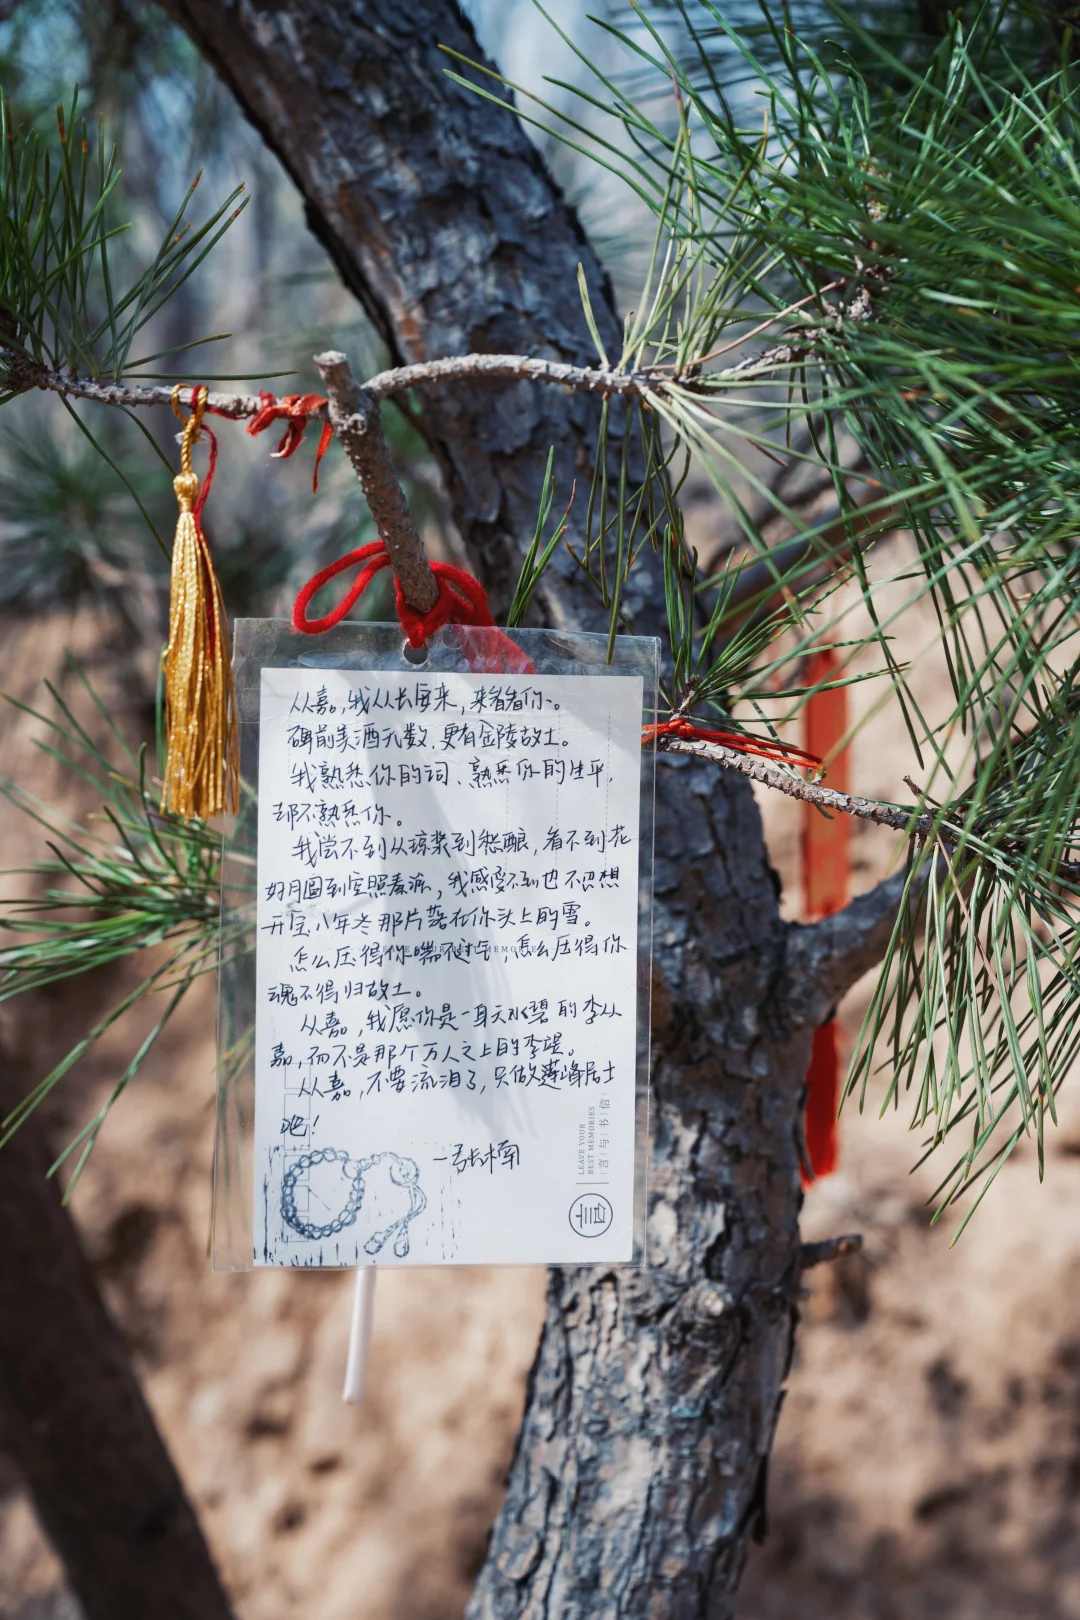 从嘉,我从长海来,来看看你。
碑前美酒无数,更有金陵故土。
我熟悉你的词、熟悉你的生平,
却不熟悉你。
我尝不到从琼浆到愁酿,看不到花
好月圆到空照秦淮,我感受不到也不思想
开宝八年冬那片落在你头上的雪。
怎么压得你喘不过气,怎么压得你
魂不得归故土。
从嘉,我愿你是一身天水碧的李从
嘉,而不是那个万人之上的李煜。
从嘉,不要流泪了,只做莲峰居士
吧!
LEAVE YOUR
BEST MEMORIES
言与书信